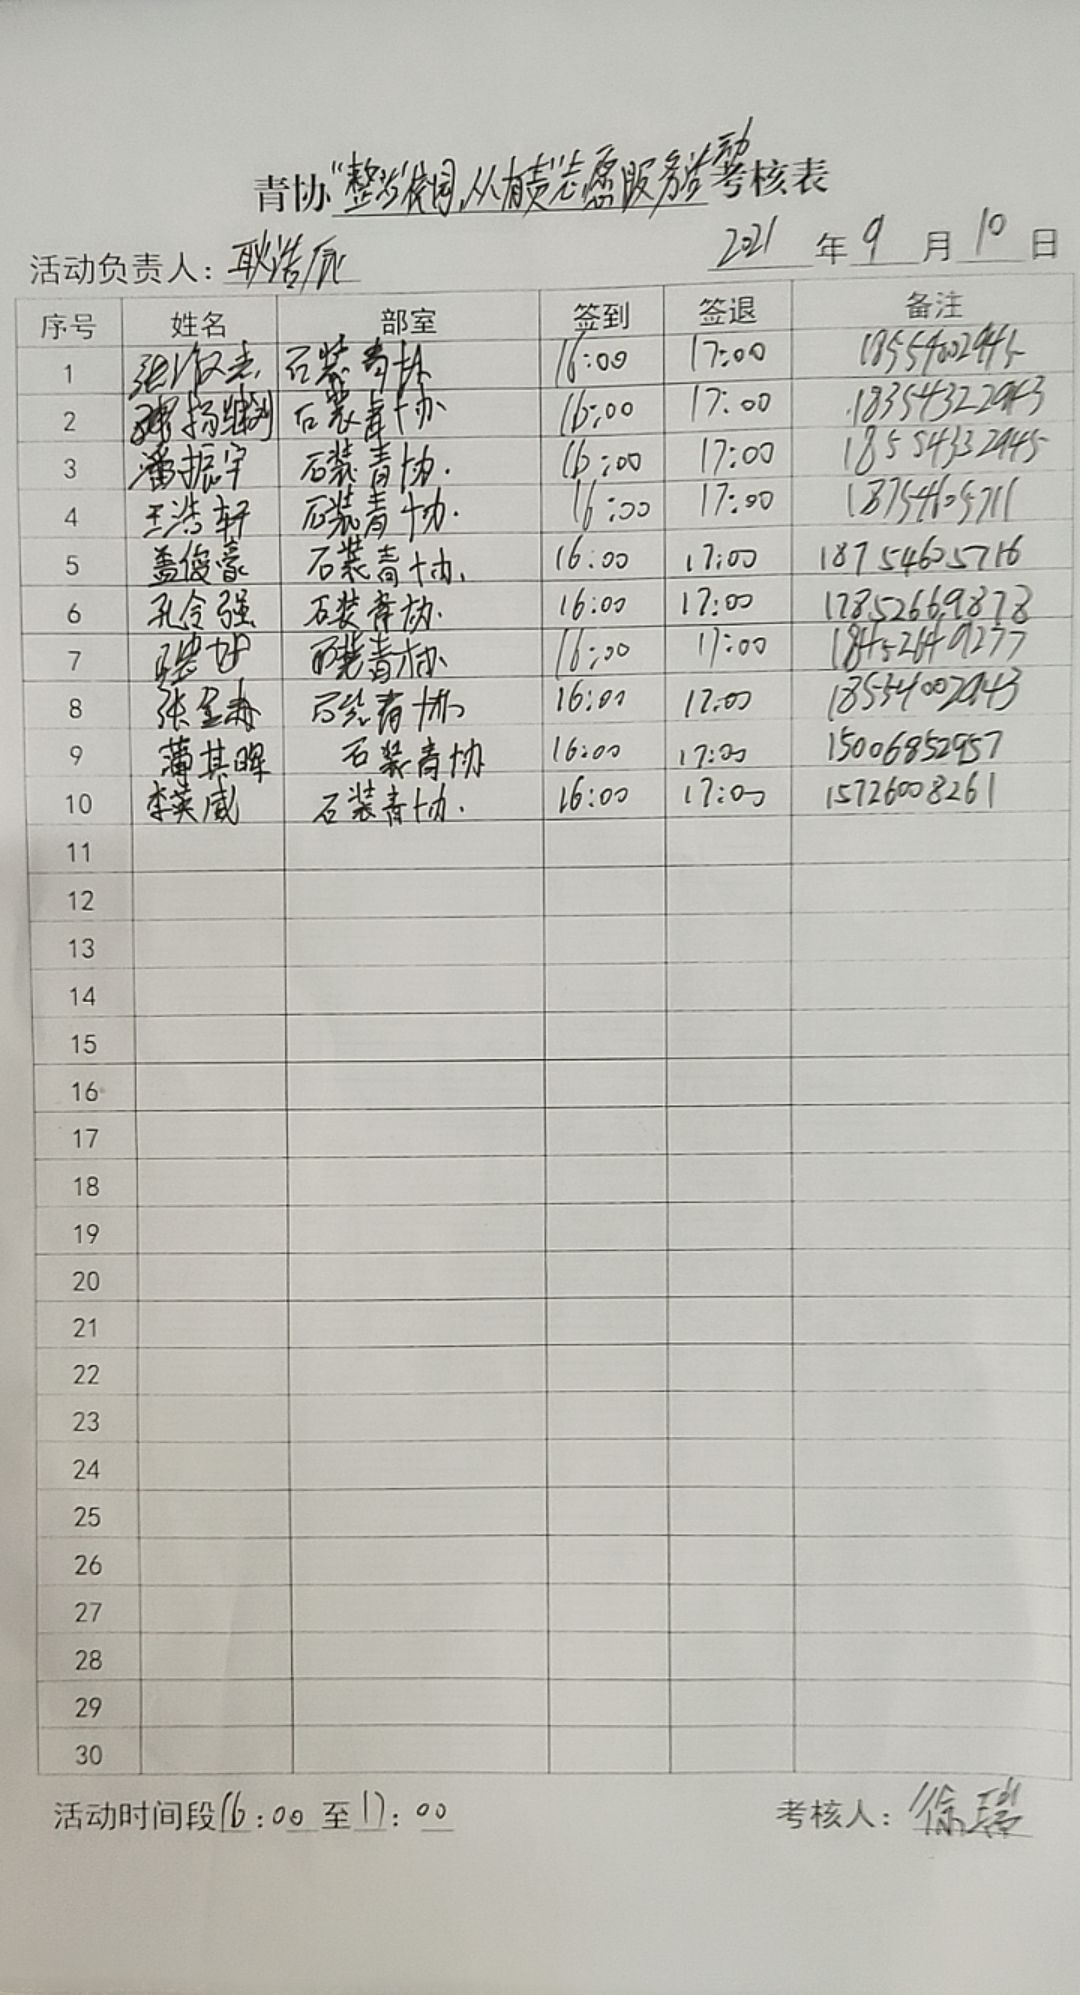 青协"整治校园,从有责"志愿服务活动考核表
活动负责人: 耿浩辰 2021 年 9 月 10 日
序号 姓名 部室 签到 签退 备注
1 石装青协 16:00 17:00
2 石装青协 16:00 17:00 18354322943
3 潘振宇 石装青协. 16:00 17:00 18554332945
4 王浩轩 石装青协. 16:00 17:00 18754605711
5 盖俊豪 石装青协. 16:00 17:00 18754605716
6 孔令强 石装青协. 16:00 17:00 17852669878
7 石装青协 16:00 17:00 18452649277
8 石装青协 16:00 17:00 18554002943
9 薄其晖 石装青协 16:00 17:00 15006852957
10 李英威 石装青协. 16:00 17:00 15726008261
11
12
13
14
15
16
17
18
19
20
21
22
23
24
25
26
27
28
29
30
活动时间段 16:00 至 17:00 考核人: 徐瑞